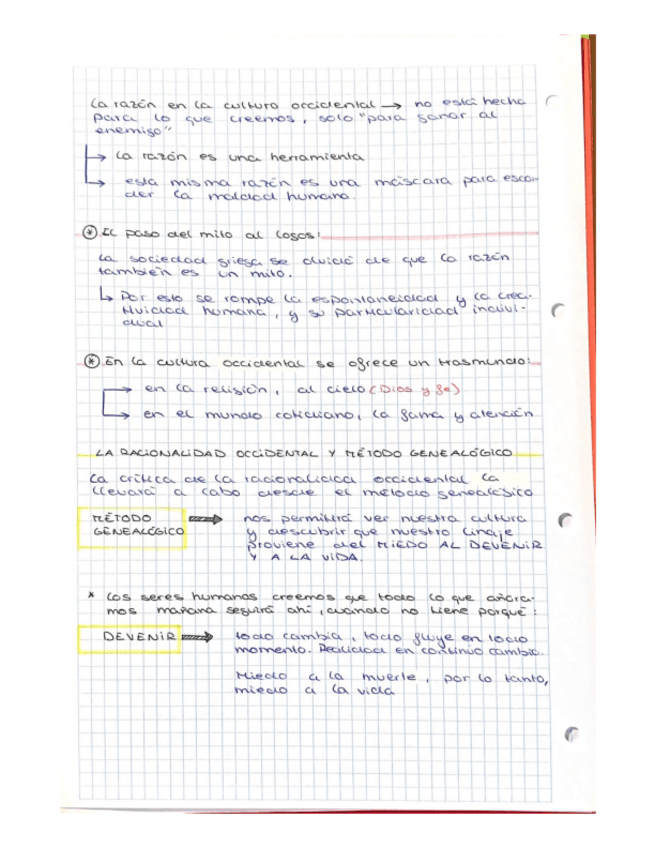 La razón en la cultura occidental → no está hecha
para lo que creemos, solo "para ganar al
enemigo"
→ La razón es una herramienta
→ esta misma razón es una máscara para escon-
der la maldad humana.
* El paso del mito al logos:
La sociedad griega se olvidó de que la razón
también es un mito.
↳ Por esto se rompe la espontaneidad y la crea-
tividad humana, y su particularidad indivi-
dual
* En la cultura occidental se ofrece un trasmundo:
→ en la religión, al cielo (Dios y fe)
→ en el mundo cotidiano, la fama y atención
LA RACIONALIDAD OCCIDENTAL Y MÉTODO GENEALÓGICO
La crítica de la racionalidad occidental la
llevará a cabo desde el método genealógico
MÉTODO GENEALÓGICO ⇒ nos permitirá ver nuestra cultura
y descubrir que nuestro linaje
proviene del MIEDO AL DEVENIR
Y A LA VIDA.
* Los seres humanos creemos que todo lo que añora-
mos mañana seguirá ahí, cuando no tiene porqué:
DEVENIR ⇒ todo cambia, todo fluye en todo
momento. Realidad en continuo cambio.
Miedo a la muerte, por lo tanto,
miedo a la vida